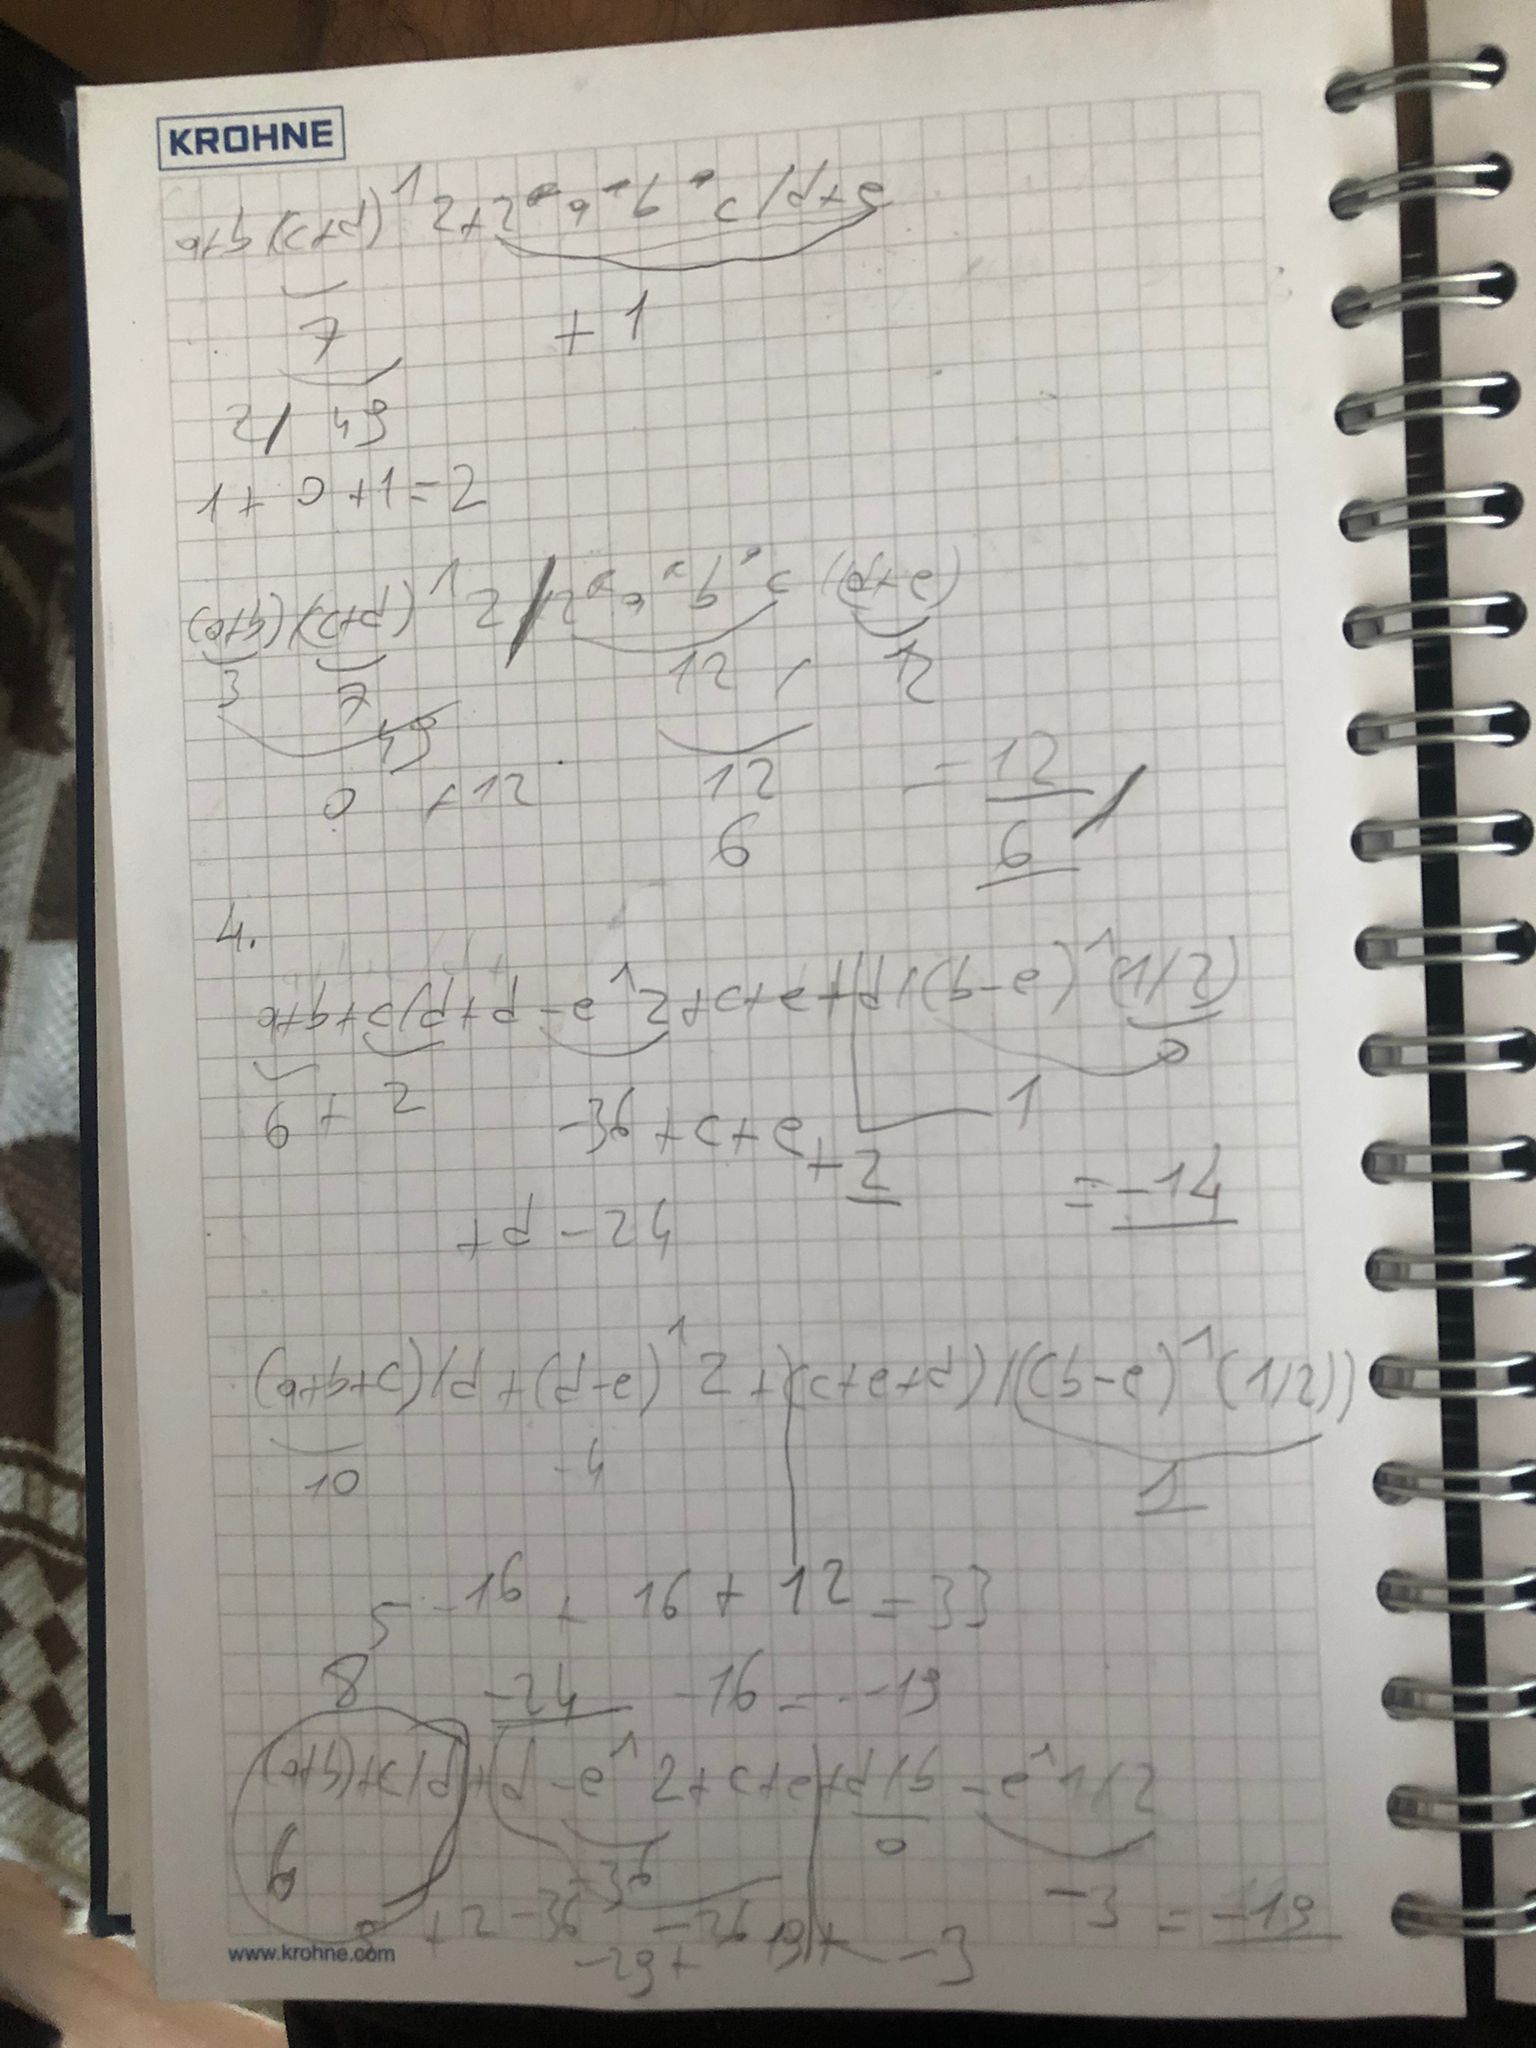 KROHNE
a+b/(c+d)^2+2*a*b*c/d+e
7 + 1
2/ 49
1+0+1=2
(a+b)/(c+d)^2/2*a*b*c/(d+e)
3 7 12 / 12
49
0 +12 12 =12
6 6
4.
a+b+c/d+d-e^2+c+e+d/(b-e)^(1/2)
0
6 + 2 -36 +c+e 1
+2
=-14
+d-24
(a+b+c)/d+(d-e)^2+(c+e+d)/((b-e)^(1/2))
10 -4 1
5 -16 + 16 + 12 =33
8 -24 -16 = -19
(a+b)+c/d+d-e^2+c+e+d/b-e^1/2
6 -36 0
+2 -36 -26 -3 = -19
-29+ 19+ -3
www.krohne.com